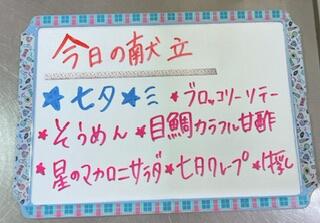 今日の献立
★七夕★ミ ★ブロッコリーソテー
★そうめん ★目鯛カラフル甘酢
★星のマカロニサラダ ★七日クレープ ★牛乳